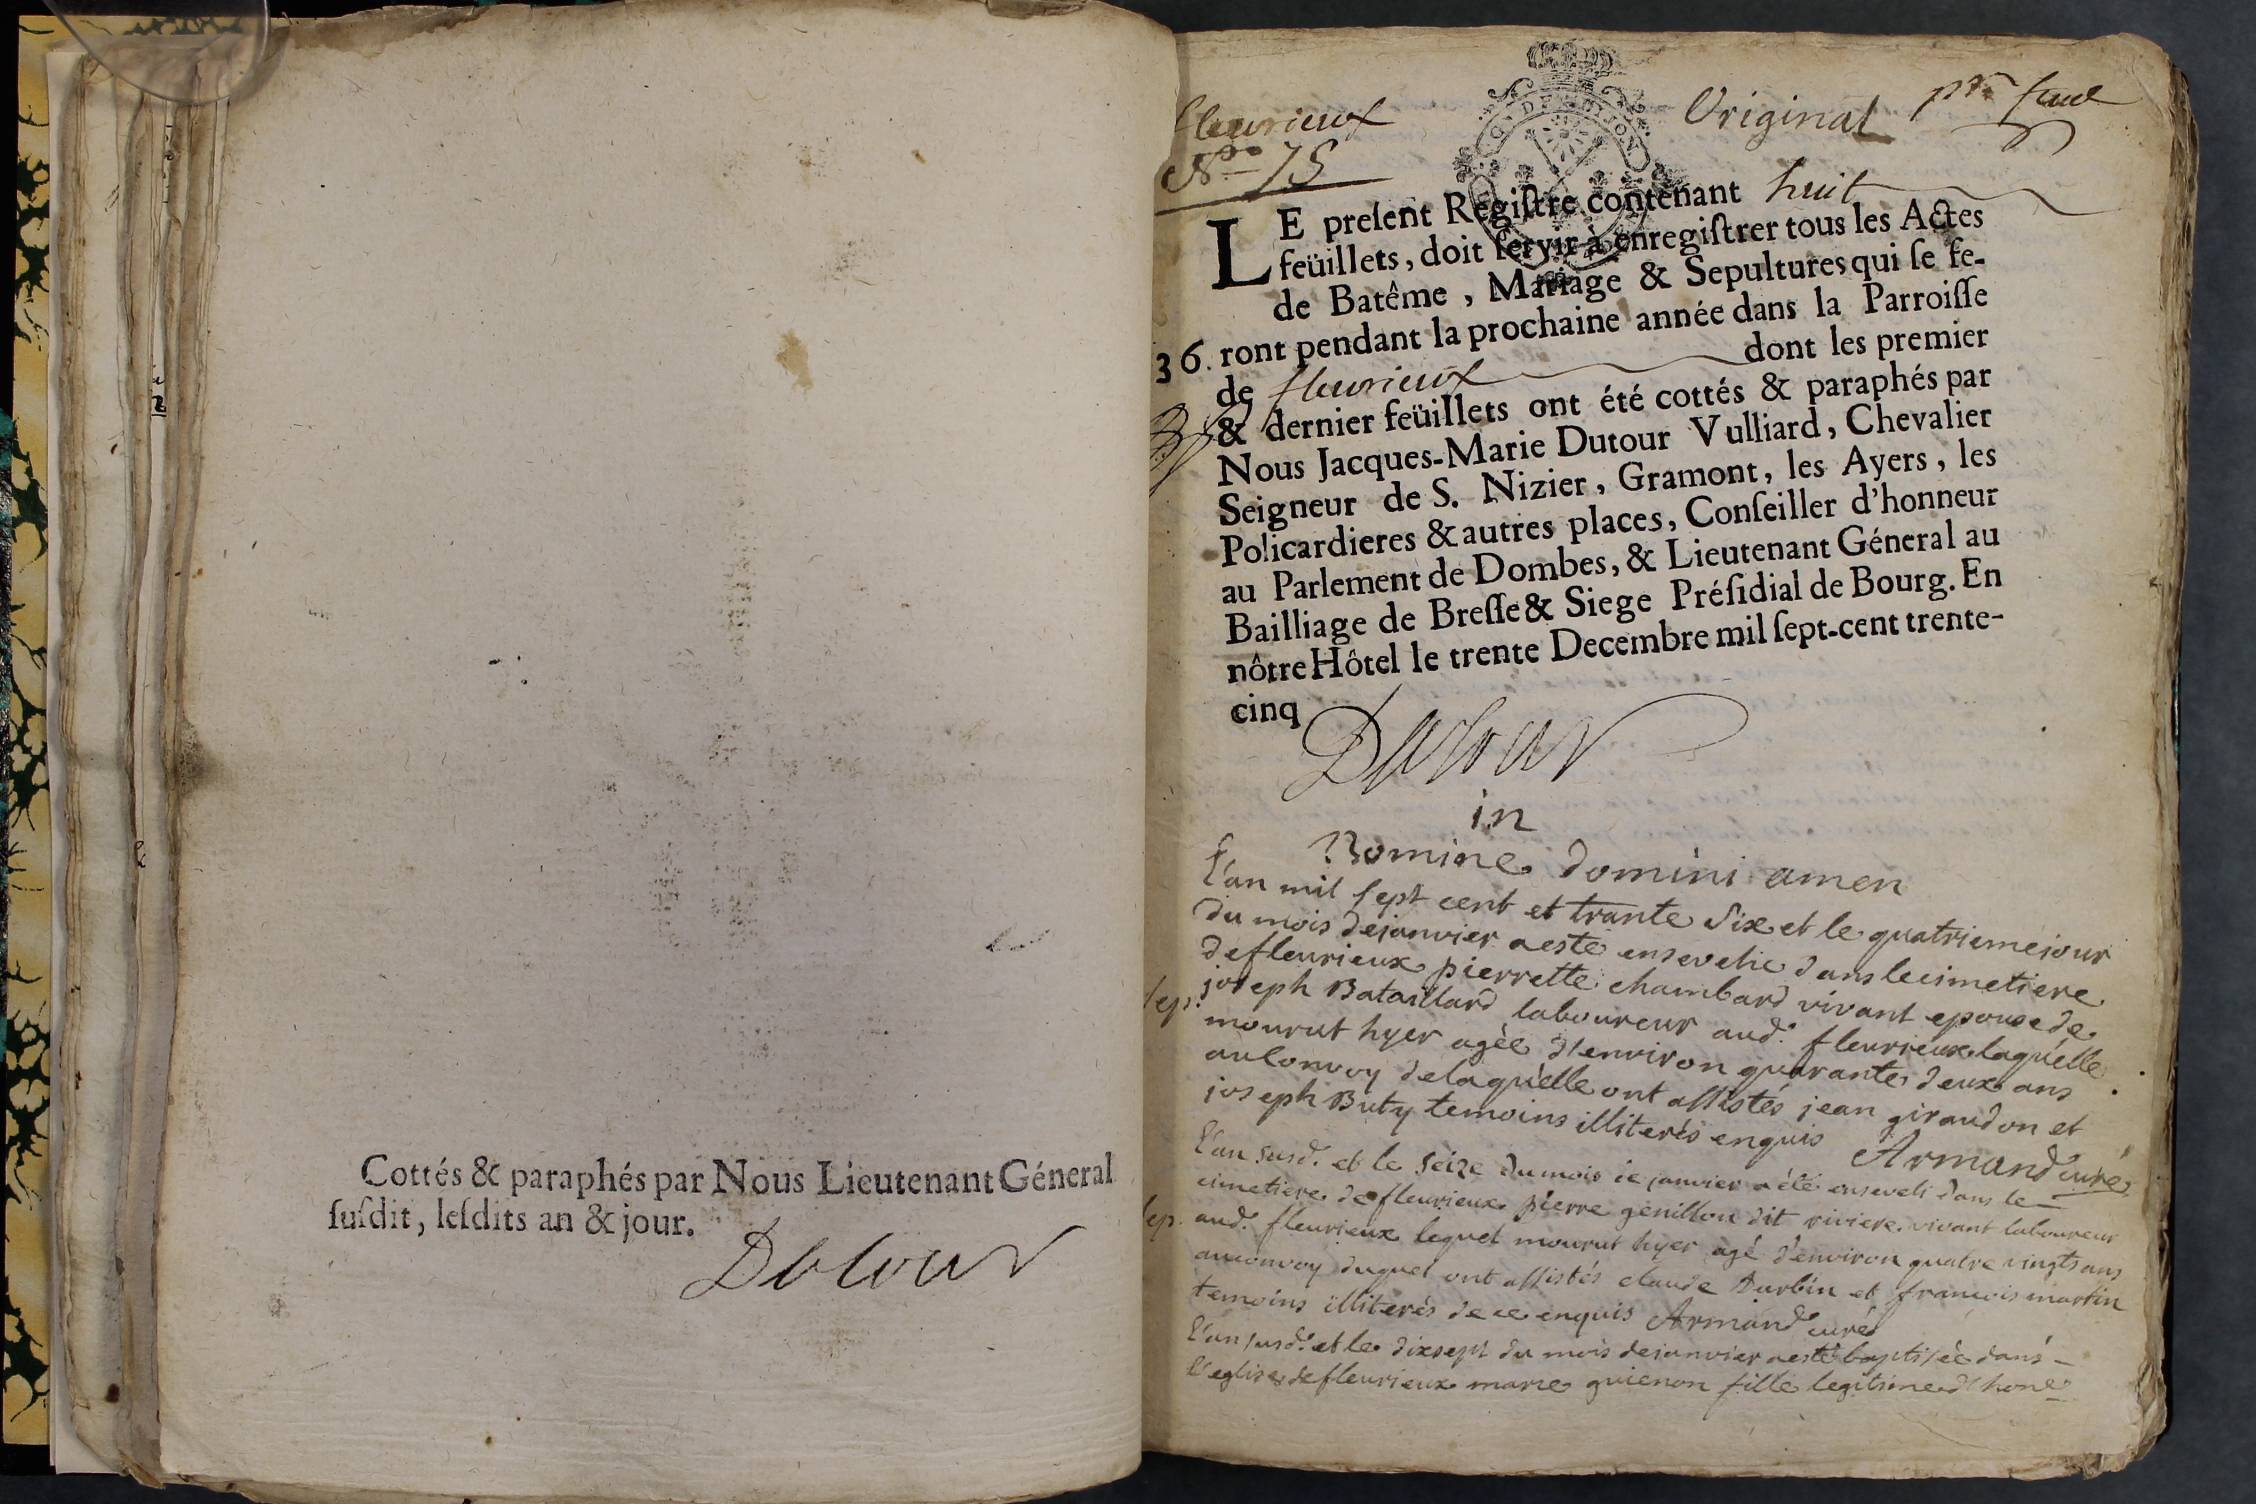 Cottés & paraphés par Nous Lieutenant Géneral
suſdit, leſdits an & jour.
Dutour
fleurieux
N.º 75
Original
LE preſent Regiſtre contenant huit
feüillets, doit ſervir à enregiſtrer tous les Actes
de Batême, Mariage & Sepultures qui ſe fe-
ront pendant la prochaine année dans la Parroiſſe
36.
de fleurieux dont les premier
& dernier feüillets ont été cottés & paraphés par
Nous Jacques-Marie Dutour Vulliard, Chevalier
Seigneur de S. Nizier, Gramont, les Ayers, les
Policardieres & autres places, Conſeiller d'honneur
au Parlement de Dombes, & Lieutenant Géneral au
Bailliage de Breſſe & Siege Préſidial de Bourg. En
nôtre Hôtel le trente Decembre mil ſept-cent trente-
cinq
Dutour
in
Nomine domini amen
L'an mil sept cent et trante six et le quatrieme jour
du mois de janvier a esté ensevelie dans le cimetiere
de fleurieux pierrette chambard vivant epouse de
sep. joseph Bataillard laboureur aud. fleurieux laquelle
mourut hyer agèe d'environ quarante deux ans
au Convoy de laquelle ont assistés jean giraudon et
joseph Buty temoins illiterés enquis Armand curé
L'an susd. et le seize du mois de janvier a été enseveli dans le
cimetiere de fleurieux pierre genillon dit riviere vivant laboureur
sep. aud. fleurieux lequel mourut hyer agé d'environ quatre vingts ans
au convoy duquel ont assistés claude Durbin et francois martin
temoins illiterés de ce enquis Armand curé
L'an susd. et le dixsept du mois de janvier a esté baptisèe dans
l'eglise de fleurieux marie guienon fille legitime d'hone